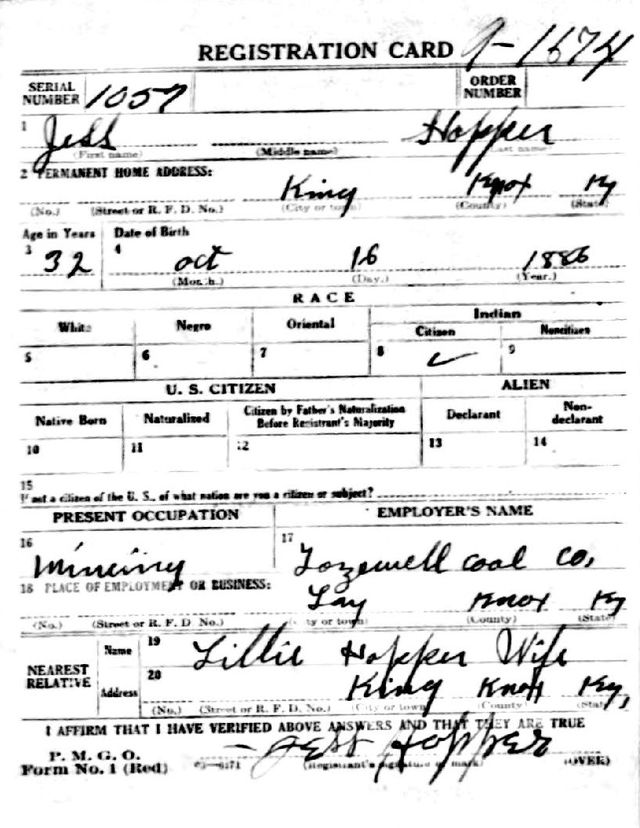 REGISTRATION CARD 9-1674
SERIAL NUMBER 1057 ORDER NUMBER
1 Jess Hopper
(First name) (Middle name) (Last name)
2 PERMANENT HOME ADDRESS:
King Knox Ky
(No.) (Street or R. F. D. No.) (City or town) (County) (State)
Age in Years Date of Birth
3 32 4 Oct 16 1886
(Month.) (Day.) (Year.)
RACE
White Negro Oriental Indian
Citizen Noncitizen
5 6 7 8 ✓ 9
U. S. CITIZEN ALIEN
Native Born Naturalized Citizen by Father's Naturalization Before Registrant's Majority Declarant Non-declarant
10 11 12 13 14
15
If not a citizen of the U. S., of what nation are you a citizen or subject?
PRESENT OCCUPATION EMPLOYER'S NAME
16 17
Mineing Tozewell Coal Co,
18 PLACE OF EMPLOYMENT OR BUSINESS:
Lay Knox Ky
(No.) (Street or R. F. D. No.) (City or town) (County) (State)
NEAREST RELATIVE Name 19 Lillie Hopper Wife
Address 20 King Knox Ky,
(No.) (Street or R. F. D. No.) (City or town) (County) (State)
I AFFIRM THAT I HAVE VERIFIED ABOVE ANSWERS AND THAT THEY ARE TRUE
P. M. G. O.
Form No. 1 (Red) Jess Hopper
(Registrant's signature or mark) (OVER)